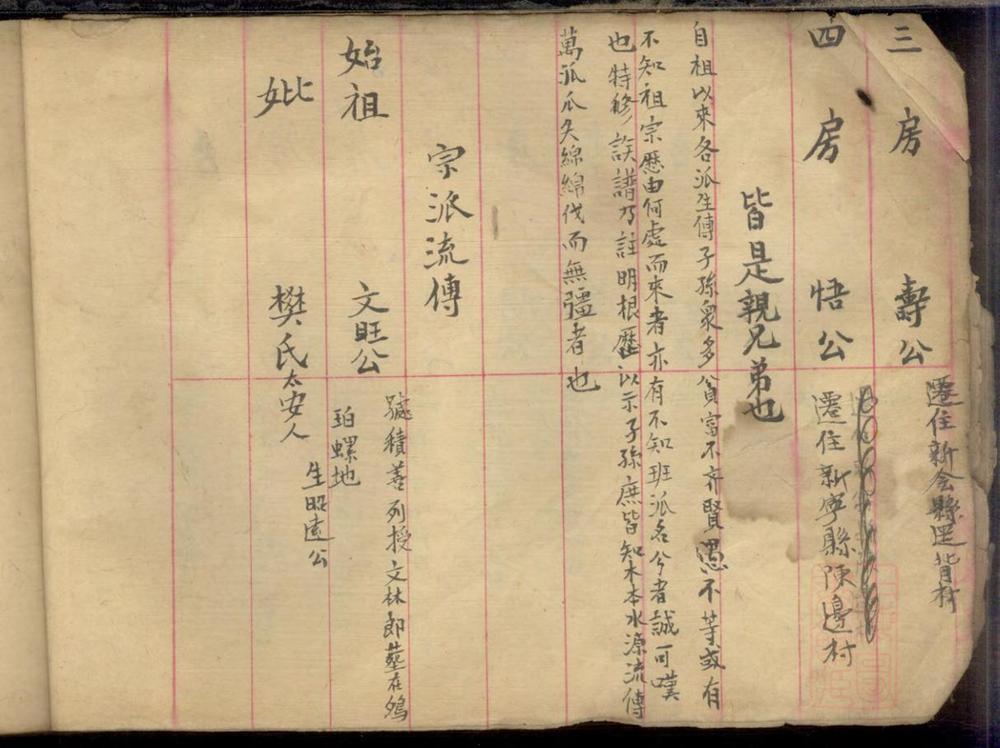 三房 壽公 遷住新会縣罡背村
四房 悟公 遷住新寧縣陳邊村
皆是親兄弟也
自祖以來各派生傳子孫衆多貧富不齊賢愚不等或有
不知祖宗歷由何處而來者亦有不知班派名兮者誠可嘆
也特修誒譜乃註明根歷以示子孫庶皆知木本水源流傳
萬派瓜久綿綿伐而無彊者也
宗派流傳
始祖 文旺公 號積善列授文林郎墓在鴉
珀螺地
妣 樊氏太安人 生昭遠公